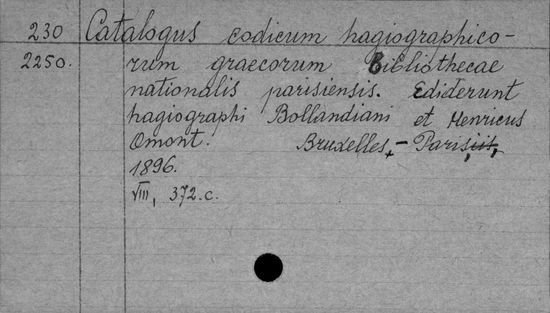 230 Catalogus codicum hagiographico-
2250. rum graecorum Bibliothecae
nationalis parisiensis. Ediderunt
hagiographi Bollandiani et Henricus
Omont. Bruxelles, - Paris,
1896.
VIII, 372.c.